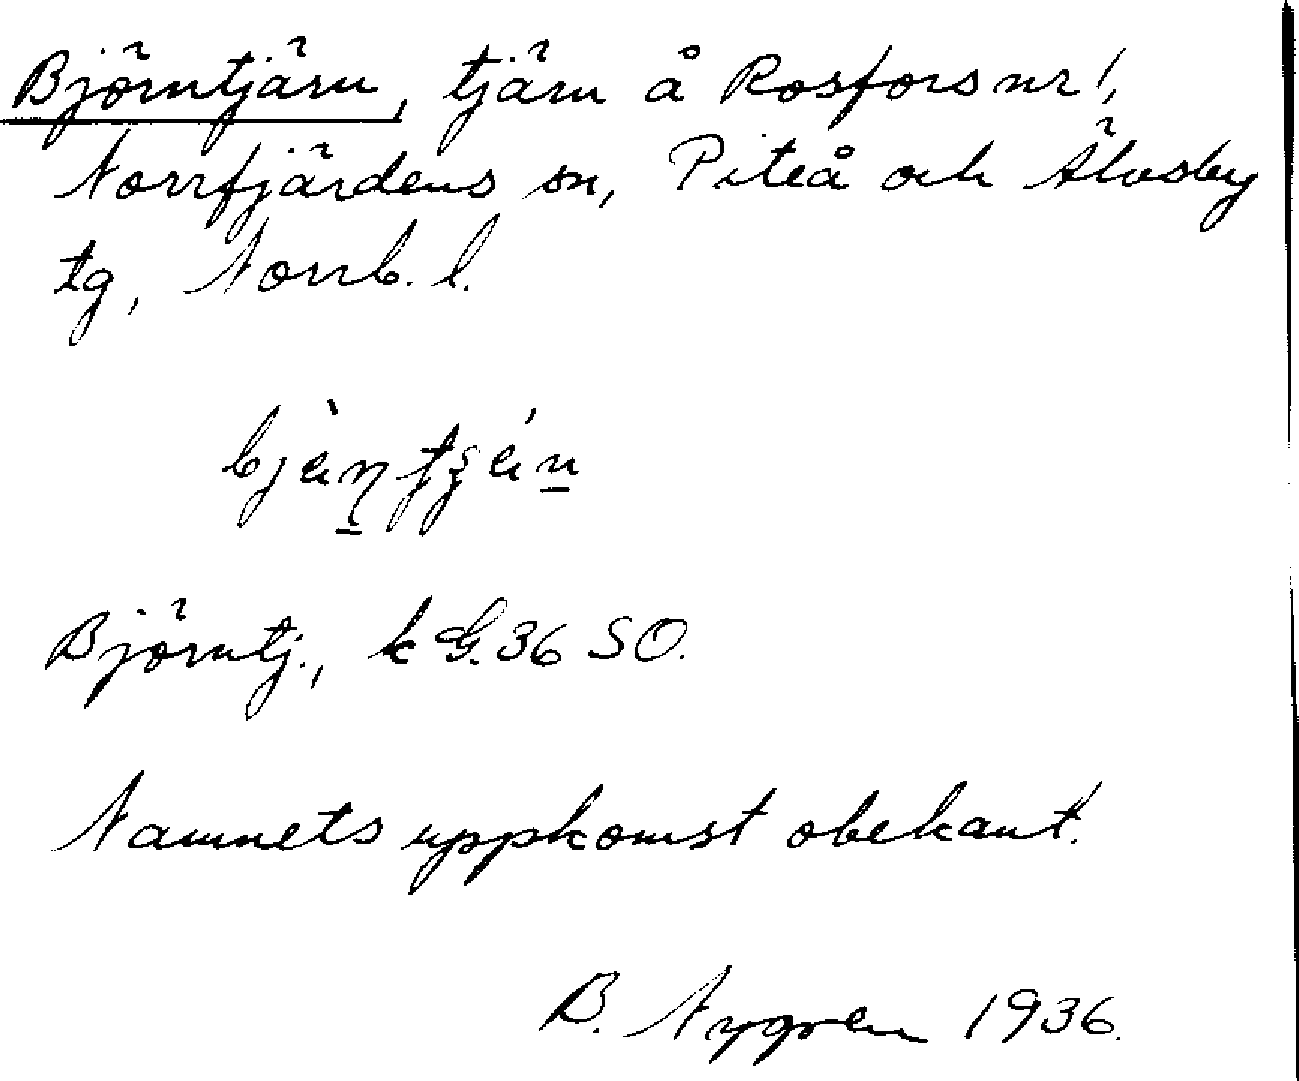 Björntjärn, tjärn å Rosfors nr 1,
Norrfjärdens sn, Piteå och Älvsby
tg, Norrb. l.
Björntj., k G. 36 SO.
Namnets uppkomst obekant.
B. Nygren 1936.